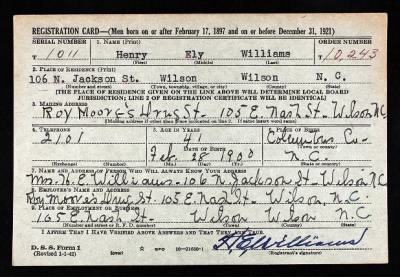 REGISTRATION CARD—(Men born on or after February 17, 1897 and on or before December 31, 1921)
SERIAL NUMBER 1. NAME (Print) ORDER NUMBER
T 1011 Henry Ely Williams 10,243
(First) (Middle) (Last)
2. PLACE OF RESIDENCE (Print)
106 N. Jackson St. Wilson Wilson N. C.
(Number and street) (Town, township, village, or city) (County) (State)
[THE PLACE OF RESIDENCE GIVEN ON THE LINE ABOVE WILL DETERMINE LOCAL BOARD
JURISDICTION; LINE 2 OF REGISTRATION CERTIFICATE WILL BE IDENTICAL]
3. MAILING ADDRESS
Roy Moore's Drug St. - 105 E. Nash St. Wilson, N.C.
[Mailing address if other than place indicated on line 2. If same insert word same]
4. TELEPHONE 5. AGE IN YEARS 6. PLACE OF BIRTH
2101 41 Columbus Co.
DATE OF BIRTH (Town or county)
Feb. 28 1900 N.C.
(Exchange) (Number) (Mo.) (Day) (Yr.) (State or country)
7. NAME AND ADDRESS OF PERSON WHO WILL ALWAYS KNOW YOUR ADDRESS
Mrs. H. E. Williams - 106 N. Jackson St. Wilson N.C.
8. EMPLOYER'S NAME AND ADDRESS
Roy Moores Drug St. 105 E. Nash St. Wilson, N.C.
9. PLACE OF EMPLOYMENT OR BUSINESS
105 E. Nash St. Wilson Wilson N.C.
(Number and street or R. F. D. number) (Town) (County) (State)
I AFFIRM THAT I HAVE VERIFIED ABOVE ANSWERS AND THAT THEY ARE TRUE.
D. S. S. Form 1
(Revised 1-1-42) (over) 16—21630-1
H E Williams